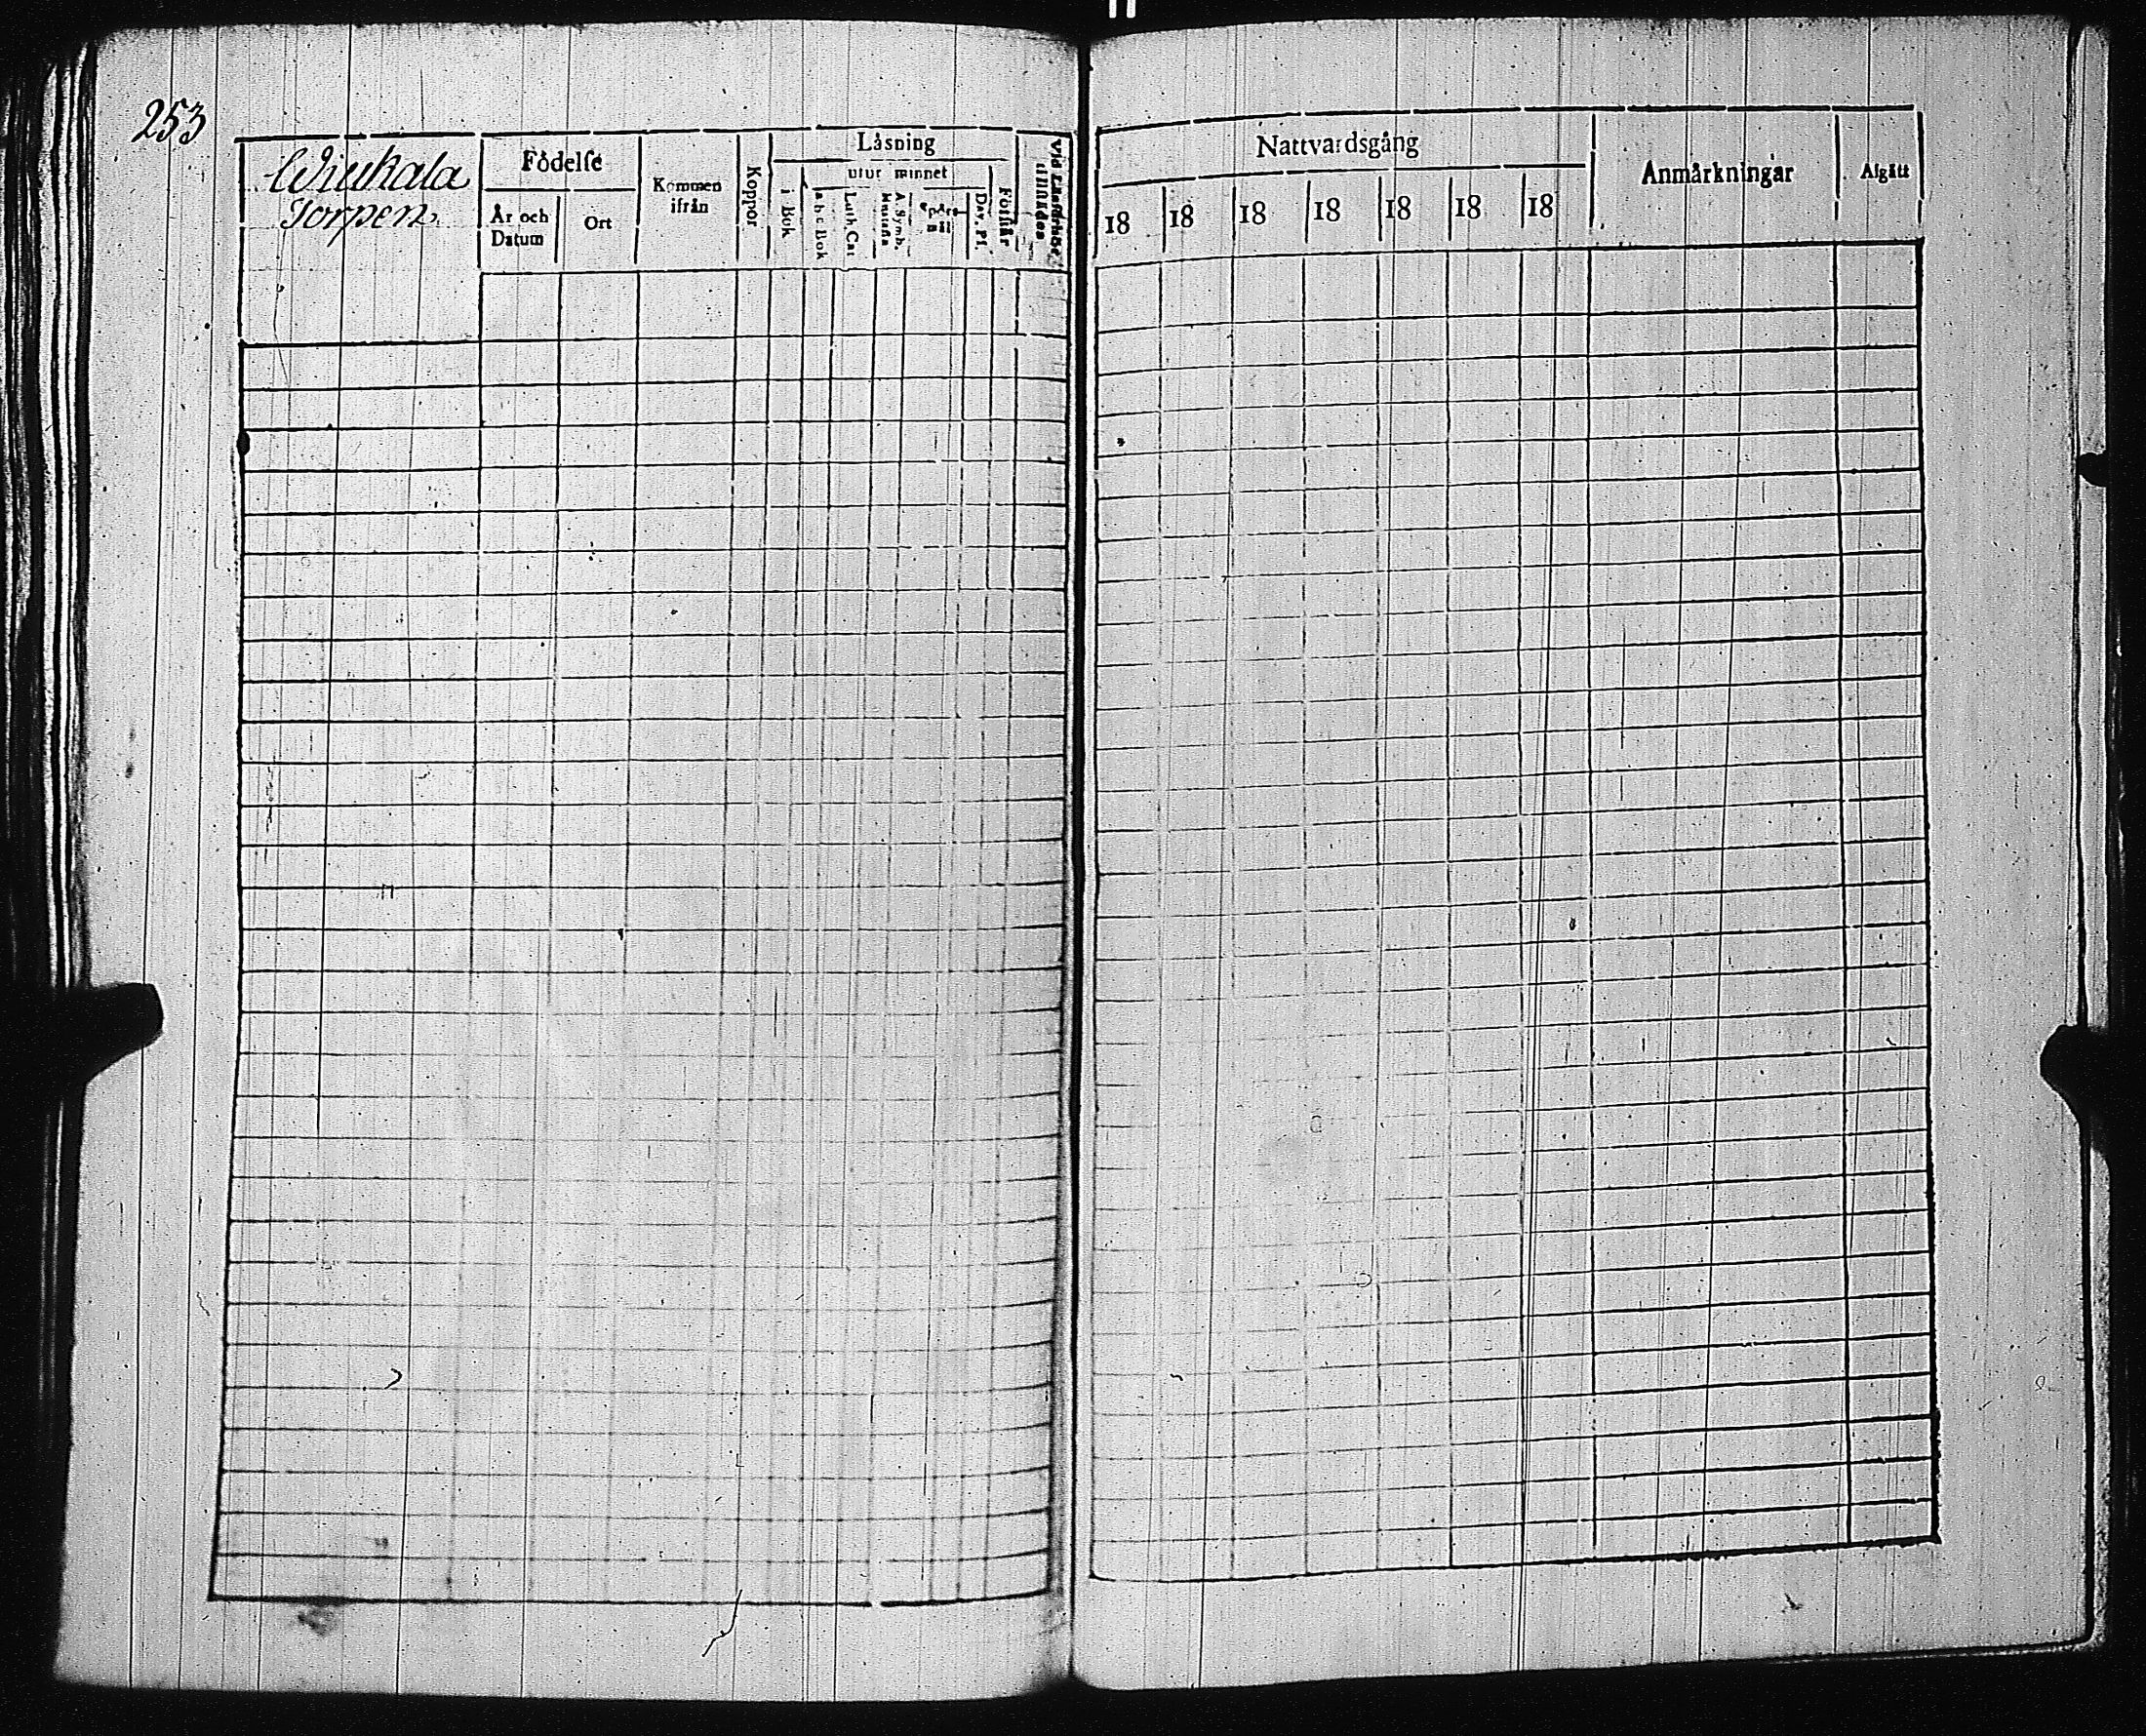 253
Wiukala
Torpen
Födelse
År och Datum
Ort
Kommen ifrån
Koppor
Läsning
i Bok
utur minnet
a b c Bok
Luth. Cat
A. Symb.
Dav. Ps.
Förstår
Nattvardsgång
18 18 18 18 18 18 18
Anmärkningar
Afgått